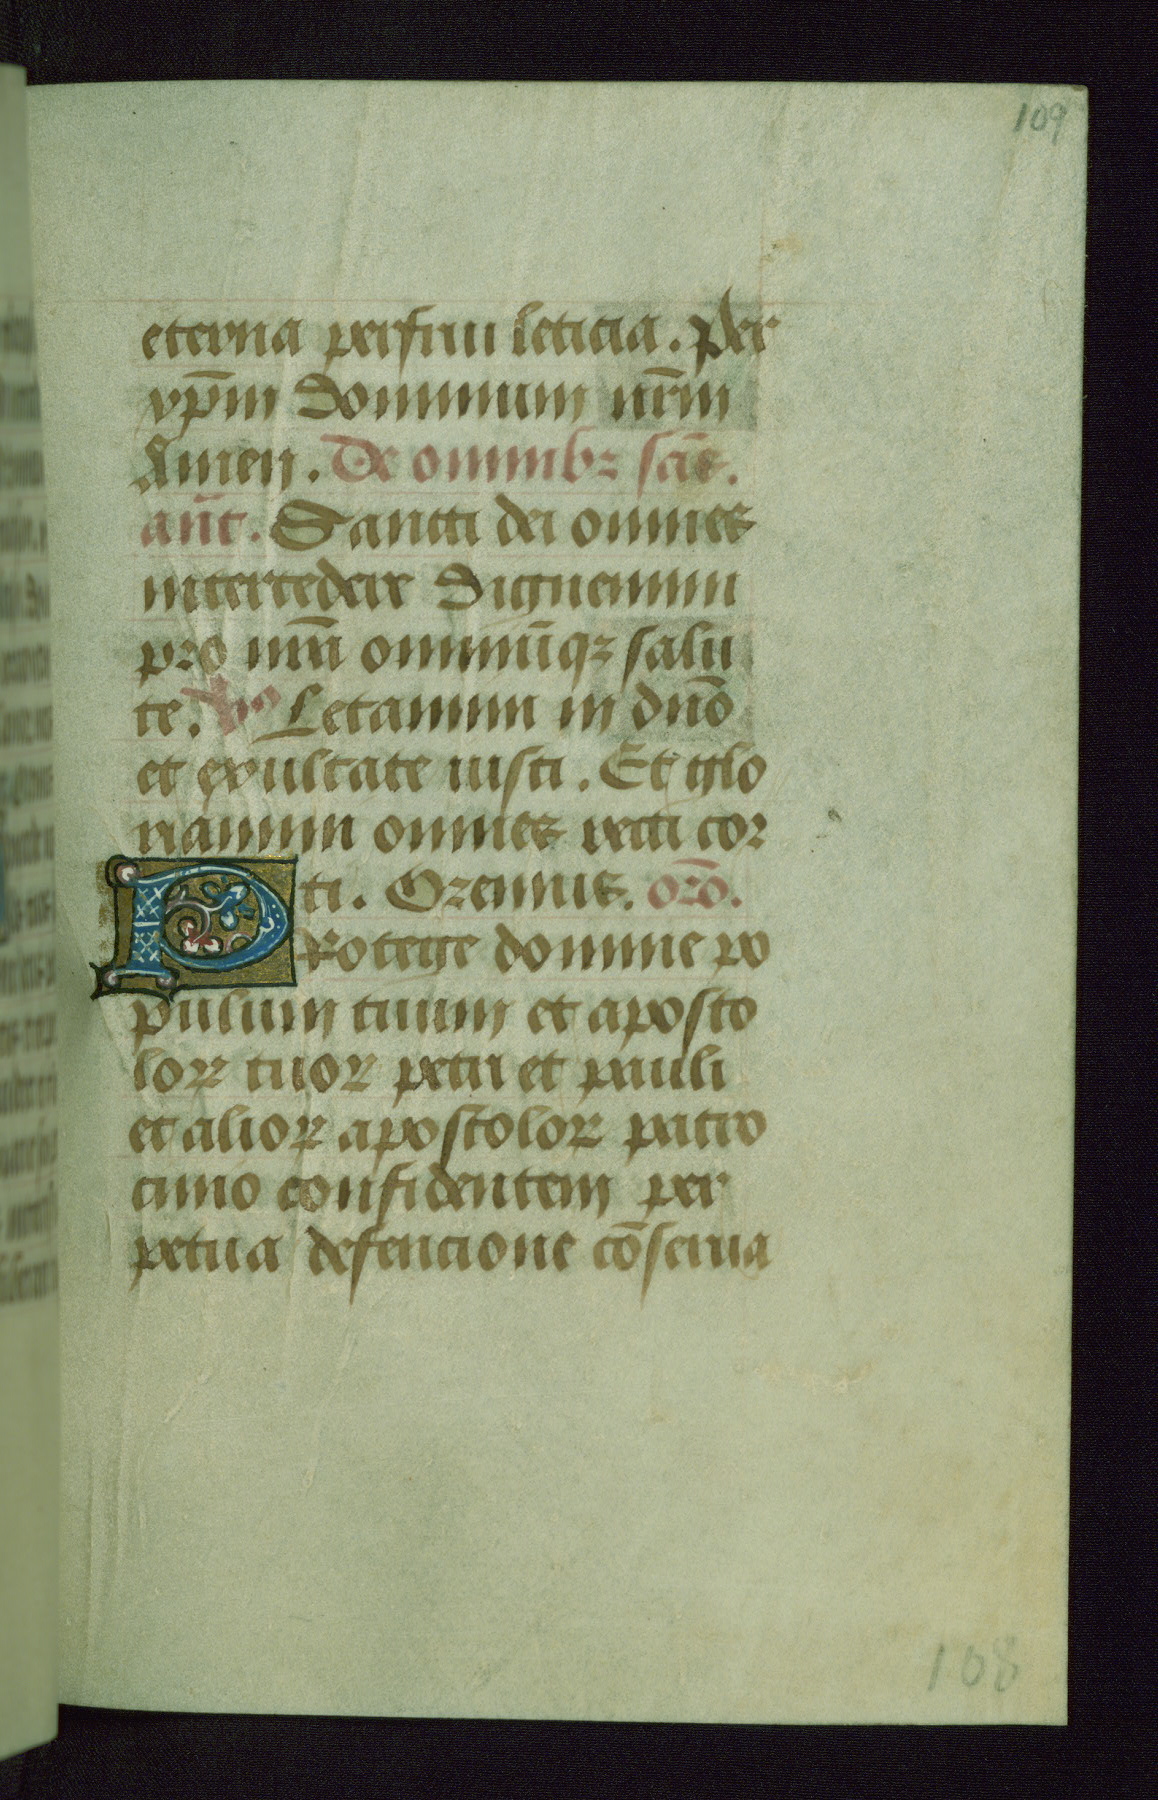 109
eterna perfrui leticia. Per
xp̄m dominum nr̄m
Amen. De omnibꝫ sc̄is.
an̄t. Sancti dei omnes
intercedere dignemini
pro nr̄a omniūqꝫ salu
te. Letamini in dn̄o
et exultate iusti. Et glo
riamini omnes recti cor
di. Oremus. or̄o.
PRotege domine po
pulum tuum et aposto
loꝝ tuoꝝ petri et pauli
et alioꝝ apostoloꝝ patro
cinio confidentem per
petua defencione cōserua
108